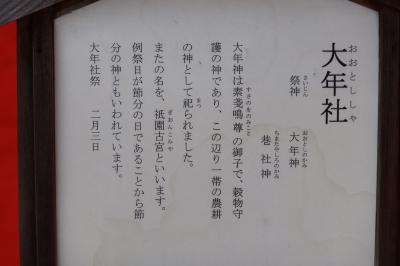 大年社
おおとししゃ
祭神
さいじん
大年神
おおとしのかみ
巷社神
ちまたやしろのかみ
大年神は素戔嗚尊の御子で、穀物守
すさのをのみこと
護の神であり、この辺り一帯の農耕
の神として祀られました。
まつ
またの名を、祇園古宮といいます。
ぎおんこみや
例祭日が節分の日であることから節
分の神ともいわれています。
大年社祭 二月三日